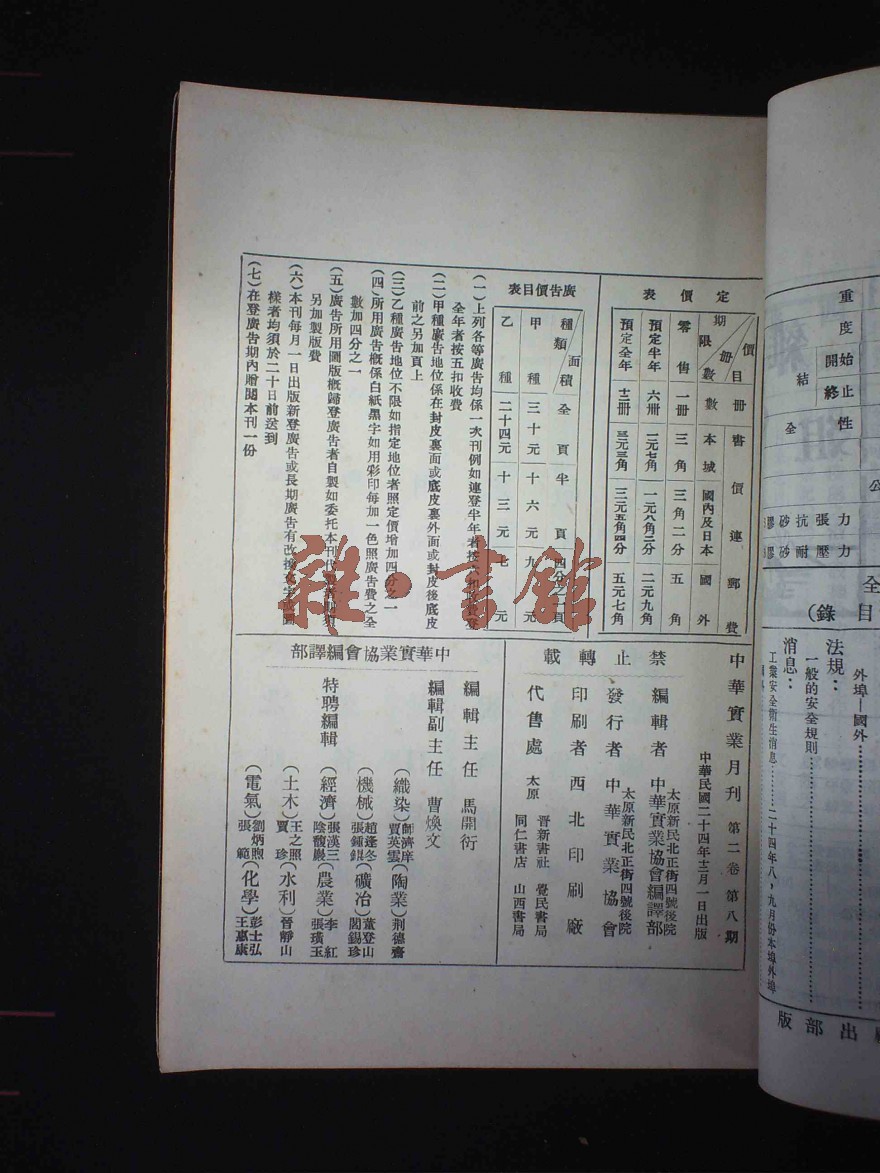 定價表
價目
冊數
期限
冊數
書價連郵費
本城
國內及日本
國外
零售
一冊
三角
三角二分
五角
預定半年
六冊
一元七角
一元八角二分
二元九角
預定全年
十二冊
三元三角
三元五角四分
五元七角
廣告價目表
面積
種類
全頁
半頁
四分之一頁
甲種
三十元
十六元
九元
乙種
二十四元
十三元
七元
(一)上列各等廣告均係一次刊例如連登半年者按六扣收費登
全年者按五扣收費
(二)甲種廣告地位係在封皮裏面或底皮裏外面或封皮後底皮
前之另加頁上
(三)乙種廣告地位不限如指定地位者照定價增加四分之一
(四)所用廣告概係白紙黑字如用彩印每加一色照廣告費之全
數加四分之一
(五)廣告所用圖版概歸登廣告者自製如委托本刊代製者
另加製版費
(六)本刊每月一日出版新登廣告或長期廣告有改換文字或圖
樣者均須於二十日前送到
(七)在登廣告期內贈閱本刊一份
中華實業月刊 第二卷 第八期
中華民國二十四年十二月一日出版
編輯者 中華實業協會編譯部
太原新民北正街四號後院
發行者 中華實業協會
太原新民北正街四號後院
印刷者 西北印刷廠
代售處 太原
晉新書社 覺民書局
同仁書店 山西書局
禁止轉載
中華實業協會編譯部
編輯主任 馬開衍
編輯副主任 曹煥文
特聘編輯
(織染)師濟庠 賈英雲
(陶業)荆德齋
(機械)趙逢冬 張鍾錕
(礦冶)董登山 閻錫珍
(經濟)張漢三 陰馥巖
(農業)李紅 張璜玉
(土木)王之照 賈珍
(水利)晉靜山
(電氣)劉炳煦 張範
(化學)彭士弘 王惠康
雜·書館
重度
開始
終止
結
全性
公
膠砂抗張力
膠砂耐壓力
全
目錄)
外埠—國外
法規:
一般的安全規則
消息:
工業安全衛生消息……二十四年八,九月份本埠外埠
出部版